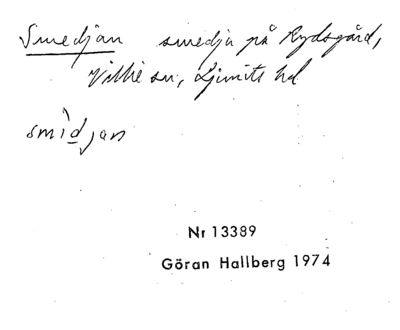 Smedjan smedja på Rydsgård,
Villie sn, Ljunits hd
smìdjan
Nr 13389
Göran Hallberg 1974